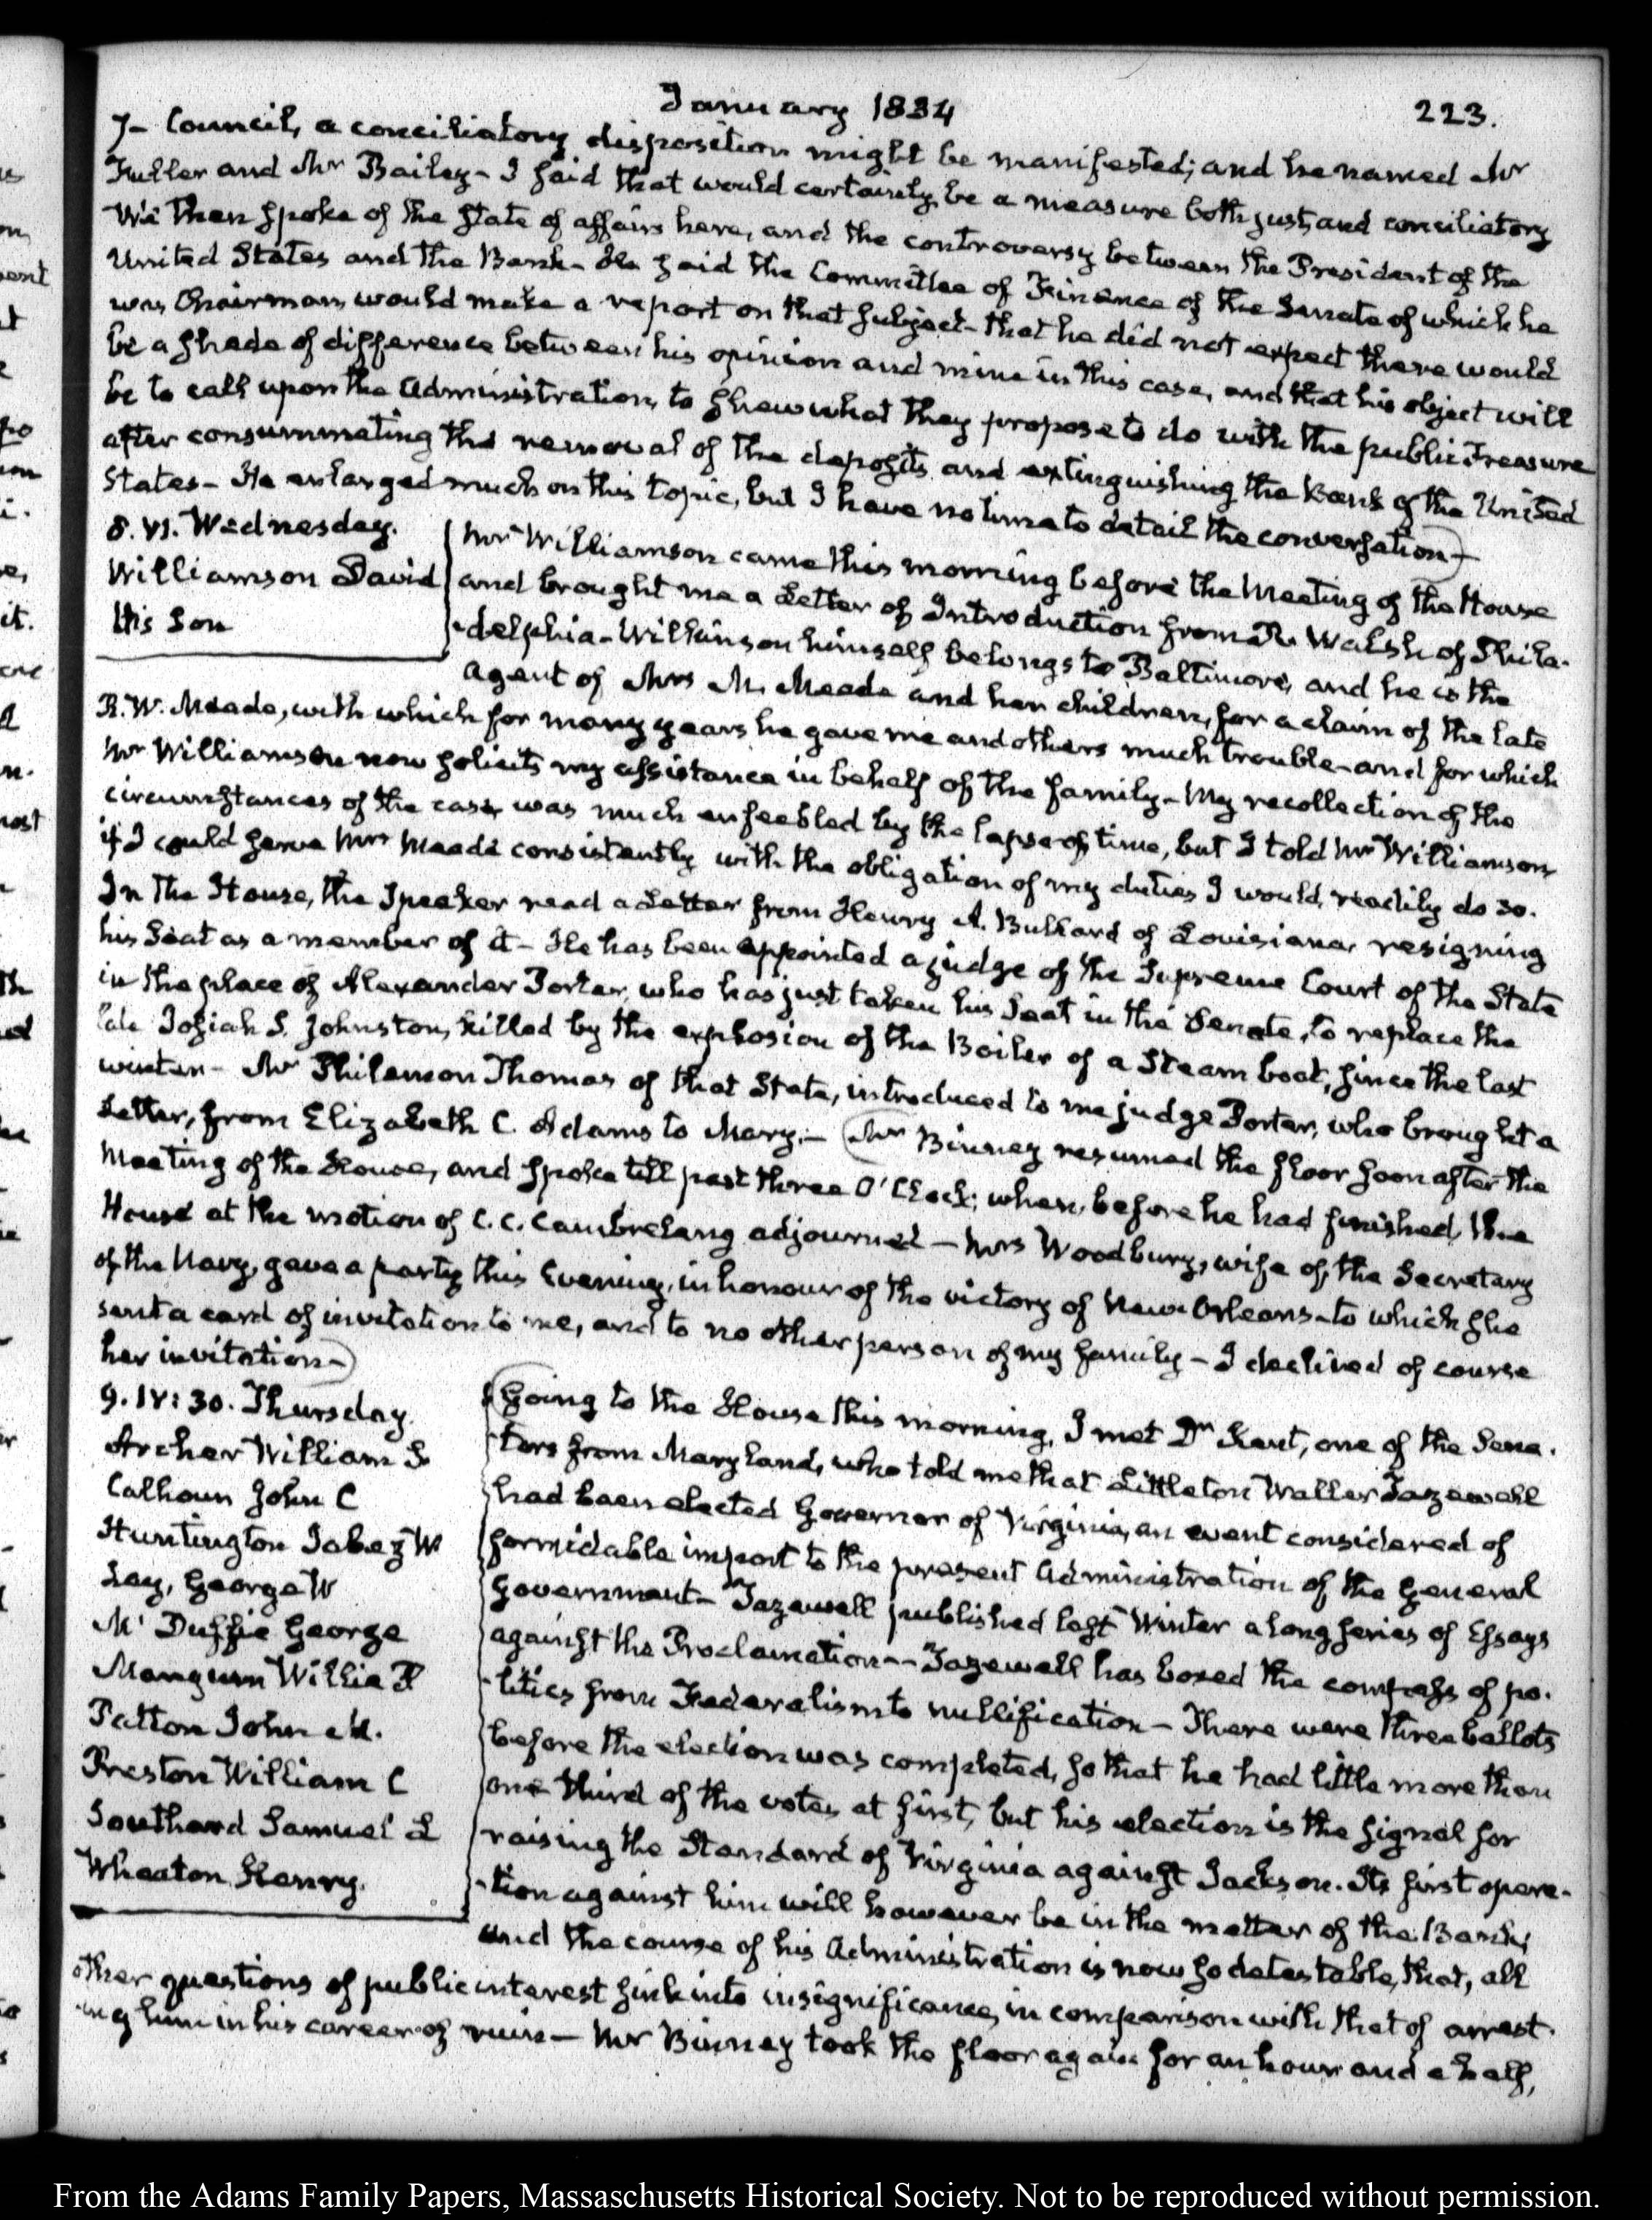 January 1834
223.
7– Council, a conciliatory disposition might be manifested; and he named Mr
Fuller and Mr Bailey– I said that would certainly be a measure both just, and conciliatory
We then spoke of the state of affairs here, and the controversy between the President of the
United States and the Bank– He said the Committee of Finance of the Senate of which he
was Chairman, would make a report on that subject– that he did not expect there would
be a shade of difference between his opinion and mine in this case, and that his object will
be to call upon the Administration, to shew what they propose to do with the public Treasure
after consummating the removal of the deposits and extinguishing the Bank of the United
States– He enlarged much on this topic, but I have no time to detail the conversation–
8. VI. Wednesday.
Williamson David
His Son
Mr Williamson came this morning before the Meeting of the House
and brought me a Letter of Introduction from R. Walsh of Phila-
-delphia– Wilkinson himself belongs to Baltimore, and he is the
Agent of Mrs M. Meade and her children, for a claim of the late
R. W. Meade, with which for many years he gave me and others much trouble– and for which
Mr Williamson now solicits my assistance in behalf of the family– My recollection of the
circumstances of the case was much enfeebled by the lapse of time, but I told Mr Williamson,
if I could serve Mrs Meade consistently with the obligation of my duties I would, readily do so.
In the House, the Speaker read a Letter from Henry A. Bullard of Louisiana, resigning
his Seat as a member of it– He has been appointed a judge of the Supreme Court of the State
in the place of Alexander Porter, who has just taken his Seat in the Senate, to replace the
late Josiah S. Johnston, killed by the explosion of the Boiler of a Steam boat, since the last
winter– Mr Philemon Thomas of that State, introduced to me judge Porter, who brought a
Letter, from Elizabeth C. Adams to Mary.– Mr Binney resumed the floor soon after the
Meeting of the House, and spoke till past three O'Clock; when, before he had finished, the
House at the motion of C. C. Cambreleng adjourned– Mrs Woodbury, wife of the Secretary
of the Navy, gave a party this Evening, in honour of the victory of New-Orleans– to which she
sent a card of invitation to me, and to no other person of my family– I declined of course
her invitation–
9. IV: 30. Thursday.
Archer William S
Calhoun John C
Huntington Jabez W
Lay, George W
Mc Duffie George
Mangum Willie P
Patton John M.
Preston William C
Southard Samuel L
Wheaton Henry.
Going to the House this morning, I met Dr Kent, one of the Sena-
-tors from Maryland, who told me that Littleton Waller Tazewell
had been elected Governor of Virginia, an event considered of
formidable import to the present Administration of the General
Government– Tazewell published last Winter a long series of Essays
against the Proclamation–– Tazewell has boxed the compass of po-
-litics from Federalism to nullification– There were three ballots
before the election was completed, so that he had little more than
one third of the votes at first, but his election is the signal for
raising the Standard of Virginia against Jackson. Its first opera-
-tion against him will however be in the matter of the Bank;
and the course of his Administration is now so detestable, that, all
other questions of public interest sink into insignificance, in comparison with that of arrest-
-ing him in his career of ruin– Mr Binney took the floor again for an hour and a half,
From the Adams Family Papers, Massachusetts Historical Society. Not to be reproduced without permission.